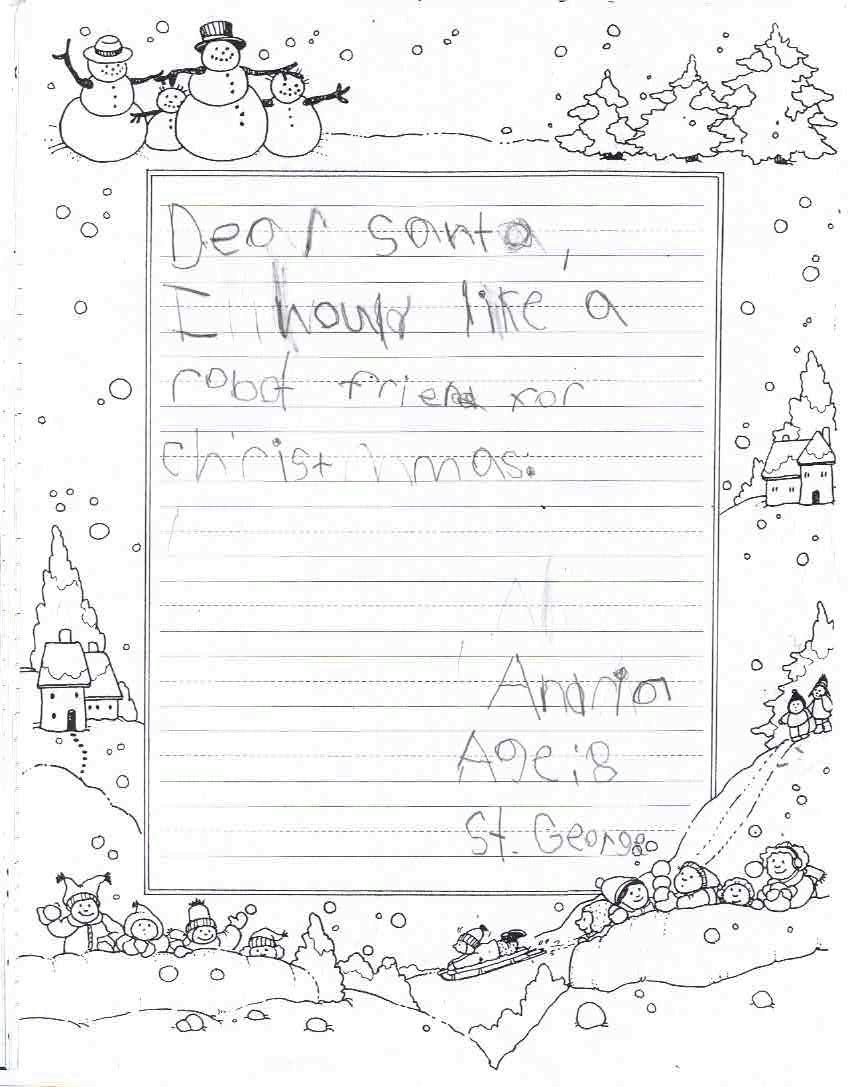 Dear santa,
I hould like a
robot friend xor
christmas.
Andria
Age:8
St. George